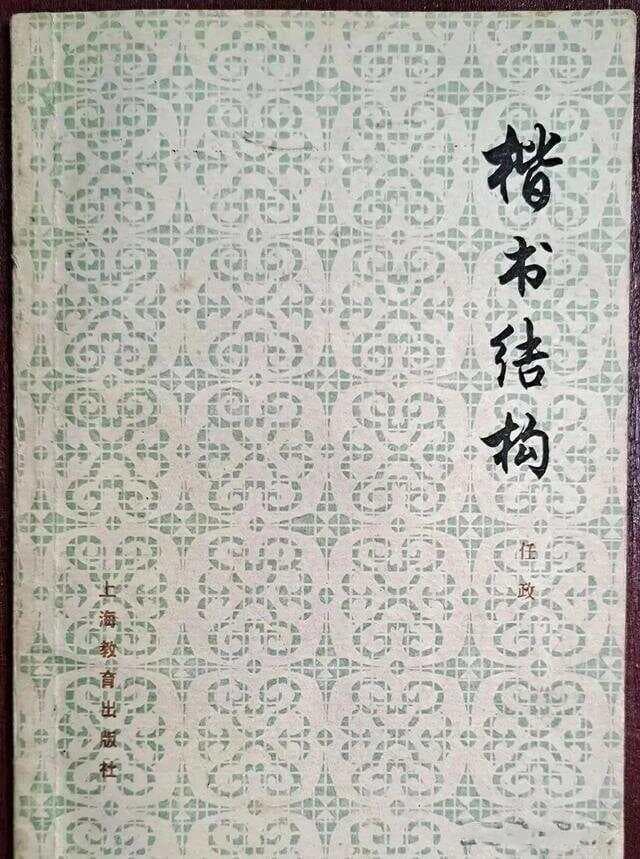 楷书结构
任政
上海教育出版社